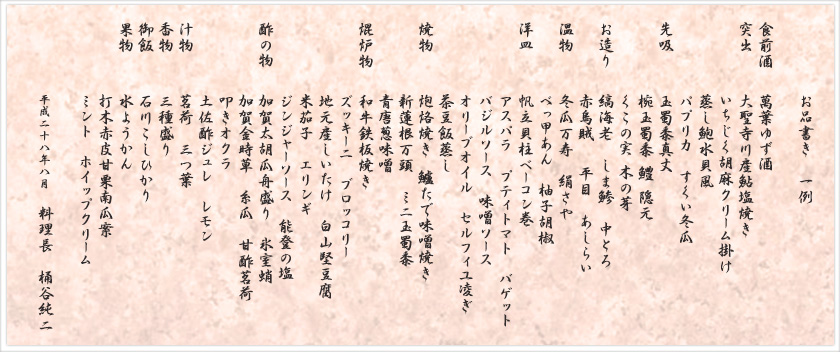 お品書き 一例
食前酒 萬葉ゆず酒
突出 大聖寺川産鮎塩焼き
いちじく胡麻クリーム掛け
蒸し鮑水貝風
パプリカ すくい冬瓜
先吸 玉蜀黍真丈
椀玉蜀黍 鱧 隠元
くこの実 木の芽
お造り 縞海老 しま鯵 中とろ
赤烏賊 平目 あしらい
温物 冬瓜万寿 絹さや
べっ甲あん 柚子胡椒
洋皿 帆立貝柱ベーコン巻
アスパラ プティトマト バゲット
バジルソース 味噌ソース
オリーブオイル セルフィユ凌ぎ
茶豆飯蒸し
焼物 炮烙焼き 鱸たで味噌焼き
新蓮根万頭 ミニ玉蜀黍
青唐葱味噌
焜炉物 和牛鉄板焼き
ズッキーニ ブロッコリー
地元産しいたけ 白山堅豆腐
米茄子 エリンギ
ジンジャーソース 能登の塩
酢の物 加賀太胡瓜舟盛り 氷室蛸
加賀金時草 糸瓜 甘酢茗荷
叩きオクラ
土佐酢ジュレ レモン
汁物 茗荷 三つ葉
香物 三種盛り
御飯 石川こしひかり
果物 水ようかん
打木赤皮甘栗南瓜寄
ミント ホイップクリーム
平成二十八年八月 料理長 桶谷純二